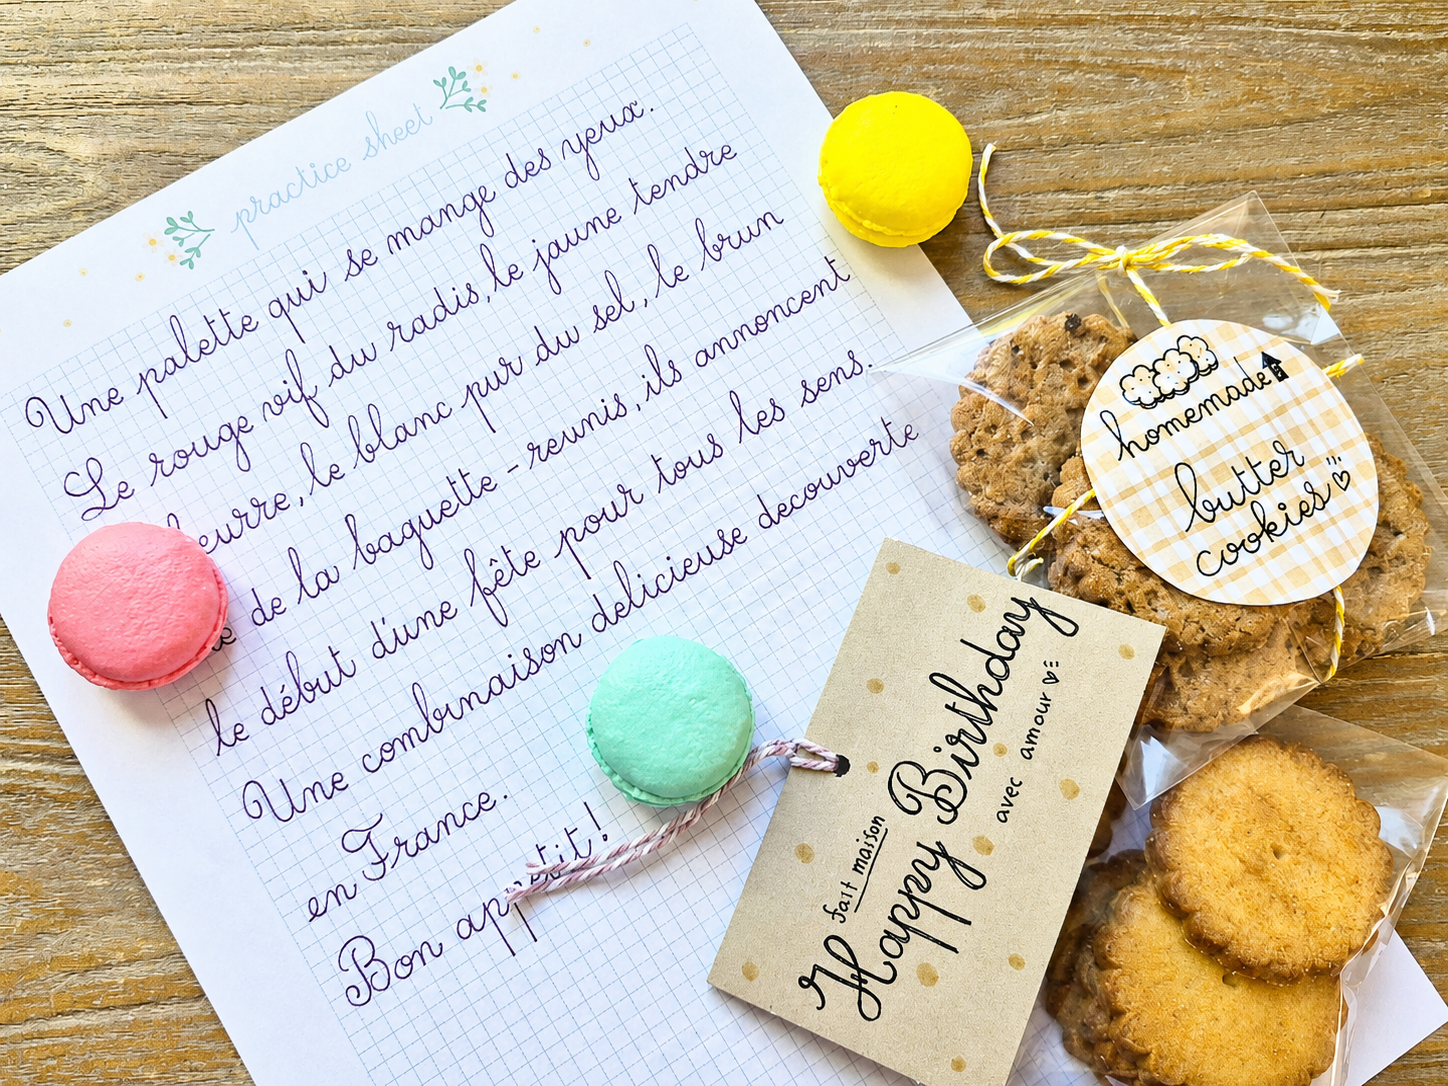 practice sheet
Une palette qui se mange des yeux.
Le rouge vif du radis, le jaune tendre
beurre, le blanc pur du sel, le brun
de la baguette - reunis, ils annoncent
le début d'une fête pour tous les sens.
Une combinaison delicieuse decouverte
en France.
Bon appétit!
homemade
butter
cookies
fait maison
Happy Birthday
avec amour